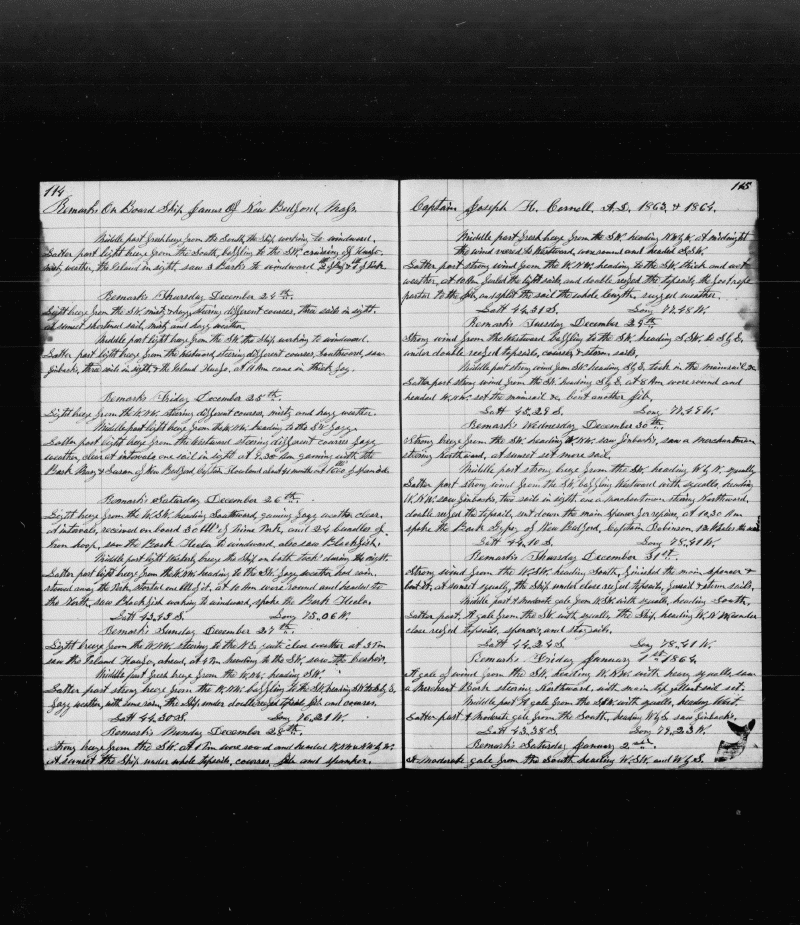 114
Remarks On Board Ship Janus Of New Bedford, Mass.
Middle part fresh breeze from the South, the Ship working to windward.
Latter part light breeze from the South, baffling to the SW. cruising off Huafo
misty weather, the Island in sight, saw 3 Barks to windward
Remarks Thursday December 24th.
Light breeze from the SW. misty & foggy steering different courses, three sails in sight.
at sunset shortened sail, misty and foggy weather.
Middle part light breeze from the SW. the Ship working to windward.
Latter part light breeze from the Westward steering different courses Southward, saw
finbacks, three sail in sight & the Island Huafo, at 11 Am came in thick fog.
Remarks Friday December 25th.
Light breeze from the W.NW. steering different courses, misty and hazy weather.
Middle part light breeze from the N.NW. heading to the SW. foggy.
Latter part light breeze from the Westward steering different courses foggy
weather, clear at intervals one sail in sight at 9.30 Am gaming with the
Bark Mary & Susan of New Bedford, Captain Howland about 41 month at 1600 of Sperm oil.
Remarks Saturday December 26th.
Light breeze from the W.SW. heading Southward, gaming foggy weather clear.
at intervals, received on board 30 bbls of Prime Pork, and 24 bundles of
Iron hoop, saw the Bark Hecla to windward, also saw Blackfish.
Middle part light Westerly breeze the Ship on both tacks during the night.
Latter part light breeze from the W.NW. heading to the SW. foggy weather and rain.
stowed away the Pork, started one bbl of it, at 10 Am wore round and headed to
the North, saw Blackfish working to windward, spoke the Bark Hecla.
Latt 43.43 S. Long 75.06 W.
Remarks Sunday December 27th.
Light breeze from the W.NW. steering to the N.E. quite clear weather at 3 Pm
saw the Island Huafo, ahead, at 4 Pm heading to the SW. saw the breakers.
Middle part fresh breeze from the W.NW. heading SW.
Latter part strong breeze from the W.NW. baffling to the SW. heading SW to S by E,
foggy weather, with some rain, the Ship under double reefed topsails jib and courses.
Latt 44.30 S. Long 76.21 W.
Remarks Monday December 28th.
Strong breeze from the SW. At 1 Pm wore round and headed W.NW & NW by W.
At sunset the Ship under whole topsails, courses, jib and spanker.
115
Captain Joseph H. Cornell, A.D. 1863, & 1864.
Middle part fresh breeze from the SW. heading NW by W. at midnight
the wind veered to Westward, wore round and headed S.SW.
Latter part strong wind from the W.NW. heading to the SW thick and wet
weather, at 10 Am furled the light sails, and double reefed the topsails, the footrope
parted to the jib, and split the sail the whole length. rugged weather.
Latt 44.31 S. Long 77.48 W.
Remarks Tuesday December 29th.
Strong wind from the Westward baffling to the SW. heading S.SW. to S by E,
under double reefed topsails, courses & storm sails.
Middle part strong wind from SW. heading S by E, took in the mainsail &c
Latter part strong wind from the SW. heading S by E, at 8 Am wore round and
headed W.NW. set the mainsail &c, bent another jib,
Latt 45.29 S. Long 77.49 W.
Remarks Wednesday December 30th.
Strong breeze from the SW. heading W.NW. saw finbacks, saw a Merchantman
steering Northward, at sunset set more sail.
Middle part strong breeze from the SW. heading W by N. squally
Latter part strong wind from the SW. baffling Westward with squalls, heading
W.NW. saw finbacks, two sails in sight, one a merchantman steering Northward,
double reefed the topsails, sent down the main spencer for repairs, at 10,30 Am
spoke the Bark Gypsy, of New Bedford, Captain Robinson,
Latt 44.10 S. Long 78.41 W.
Remarks Thursday December 31st.
Strong wind from the W.SW. heading South, finished the main spencer &
bent it, at sunset squally, the Ship under close reefed topsails, foresail & storm sails.
Middle part A moderate gale from W.SW. with squalls, heading South.
Latter part, A gale from the SW. with squalls, the Ship, heading W.NW under
close reefed topsails, spencer, and staysails.
Latt 44.24 S Long 78.41 W.
Remarks Friday January 1st 1864
A gale of wind from the SW. heading W.NW. with heavy squalls, saw
a Merchant Bark steering Northward, with main topgallant sail set.
Middle part A gale from the S.SW. with squalls, heading West.
Latter part A moderate gale from the South, heading W by S. saw finbacks.
Latt 43.38 S. Long 79.23 W.
Remarks Saturday January 2nd.
A moderate gale from the South heading W.SW. and W by S.